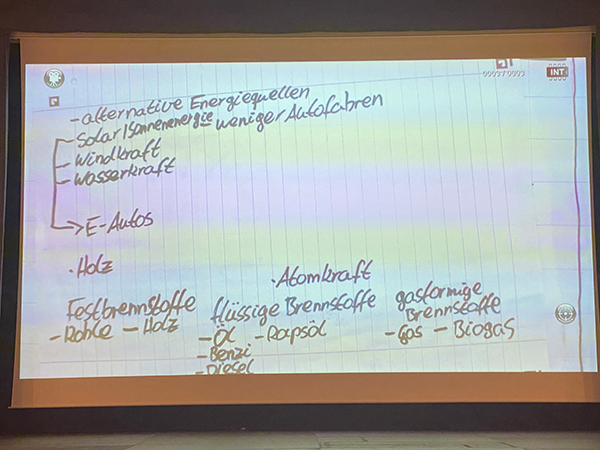 0003/0003
INT
- alternative Energiequellen
- Solar/Sonnenenergie weniger Autofahren
- Windkraft
- Wasserkraft
→ E-Autos
· Holz
· Atomkraft
Festbrennstoffe flüssige Brennstoffe gasförmige Brennstoffe
- Kohle - Holz - Öl - Rapsöl - Gas - Biogas
- Benzi
- Diesel